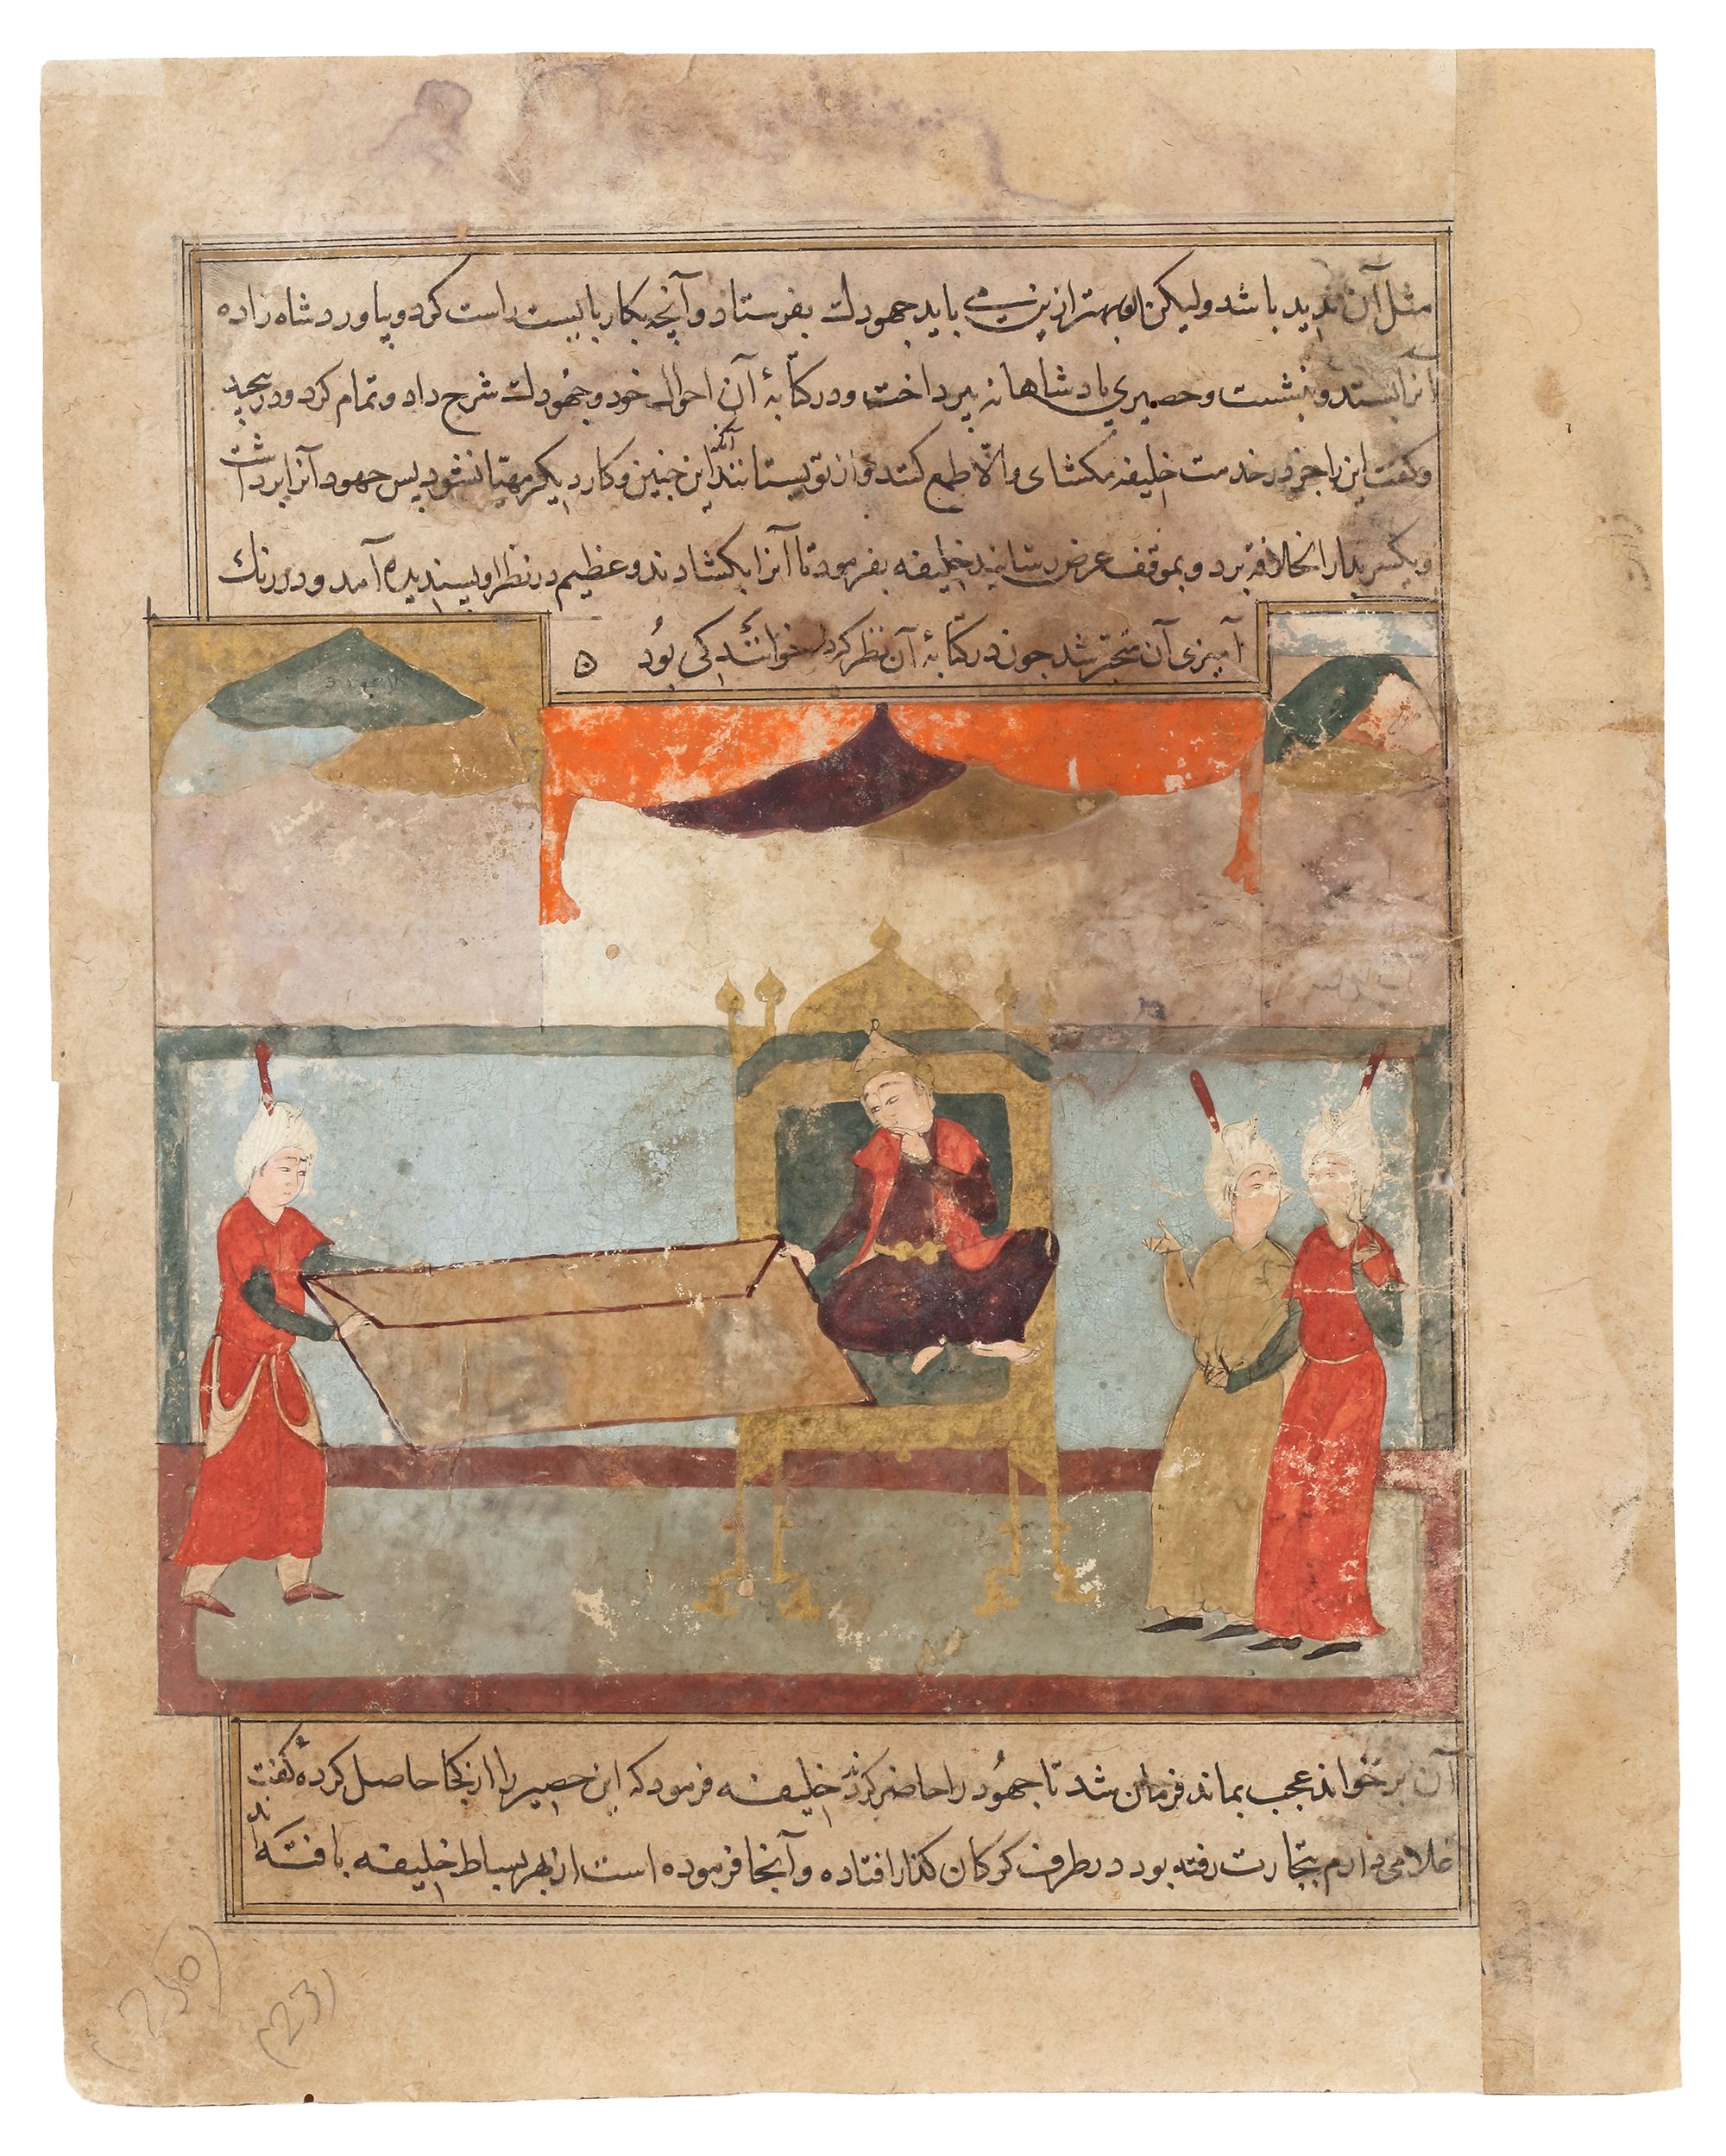 مثل آن ندید باشد ولیکن بهتر ازین می باید جهودک بفرستاد و آنچه بکار بایست راست کرد و بیاورد شاه زاده
آنرا بستد و بنشست و حصیری پادشاهانه بپرداخت و در کتابهٔ آن احوال خود و جهودک شرح داد و تمام کرد و در پیچید
و کفت این را جز در خدمت خلیفه مکشای والّا طمع کنند و از تو بستانند آنکه این جنین و کار دیکر مهیّا نشود پس جهود آنرا برداشت
و یکسر بدار الخلافه برد و بموقف عرض رسانید خلیفه بفرمود تا آنرا بکشادند و عظیم در نظر او پسندیده آمد و در رنك
آمیزی آن متحیّر شد جون در کتابهٔ آن نظر کرد خوانندکی بود
آن برخواند عجب بماند فرمان شد تا جهود را حاضر کردند خلیفه فرمود که این حصیر را از کجا حاصل کردهٔ کفت
غلامی دارم بتجارت رفته بود در طرف کرکان کذار افتاده و آنجا فرموده است از بهر بساط خلیفه بافته اند
(250)
(23)